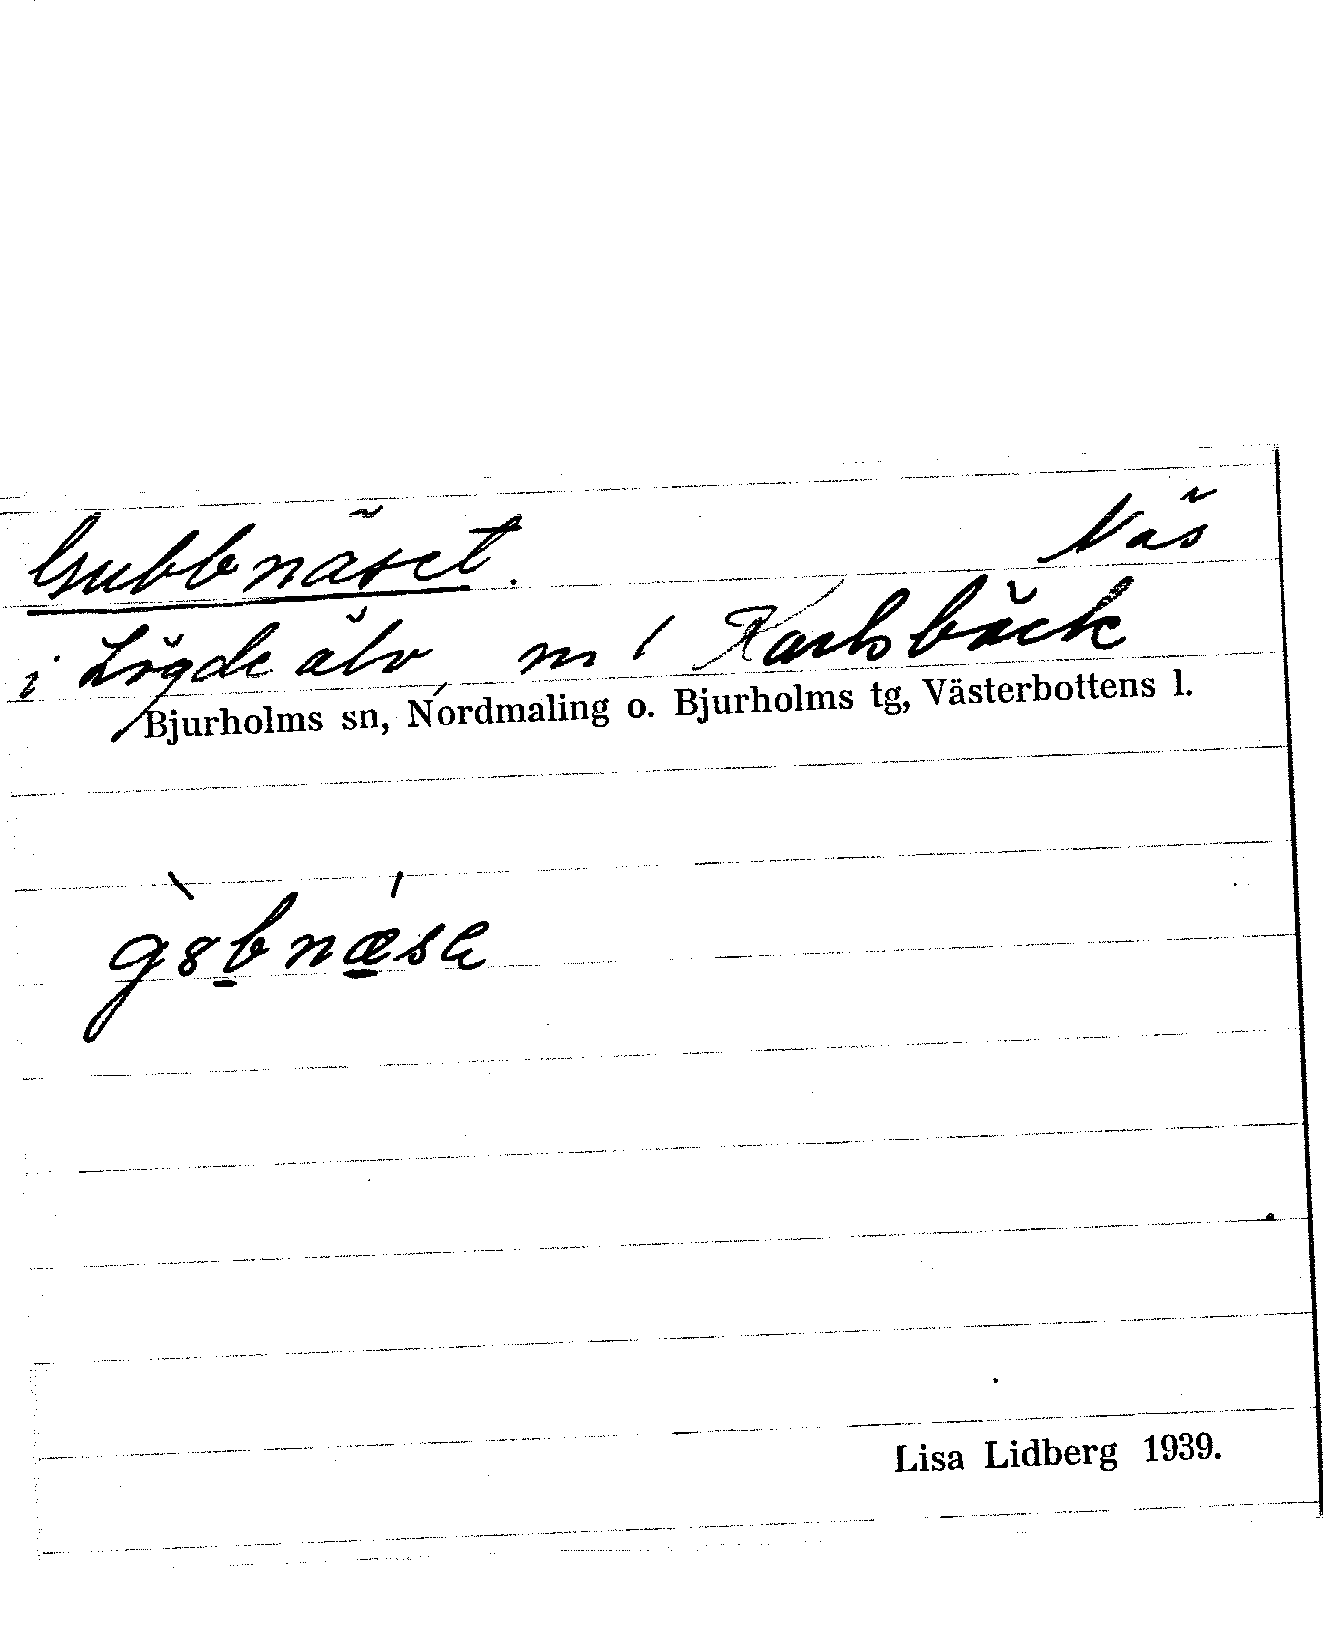 Gubbnäset. Näs
i Lögde älv, m / Karlsbäck
Bjurholms sn, Nordmaling o. Bjurholms tg, Västerbottens l.
g8bnæsa
Lisa Lidberg 1939.